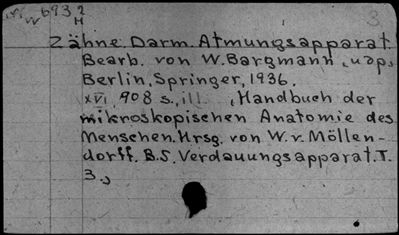 W 693 2
H
3
Zähne. Darm. Atmungsapparat.
Bearb. von W. Bargmann, uap,
Berlin, Springer, 1936.
XVI, 908 s., ill. „Handbuch der
mikroskopischen Anatomie des
Menschen. Hrsg. von W. v. Möllen-
dorff. B.5. Verdauungsapparat. T.
3.„